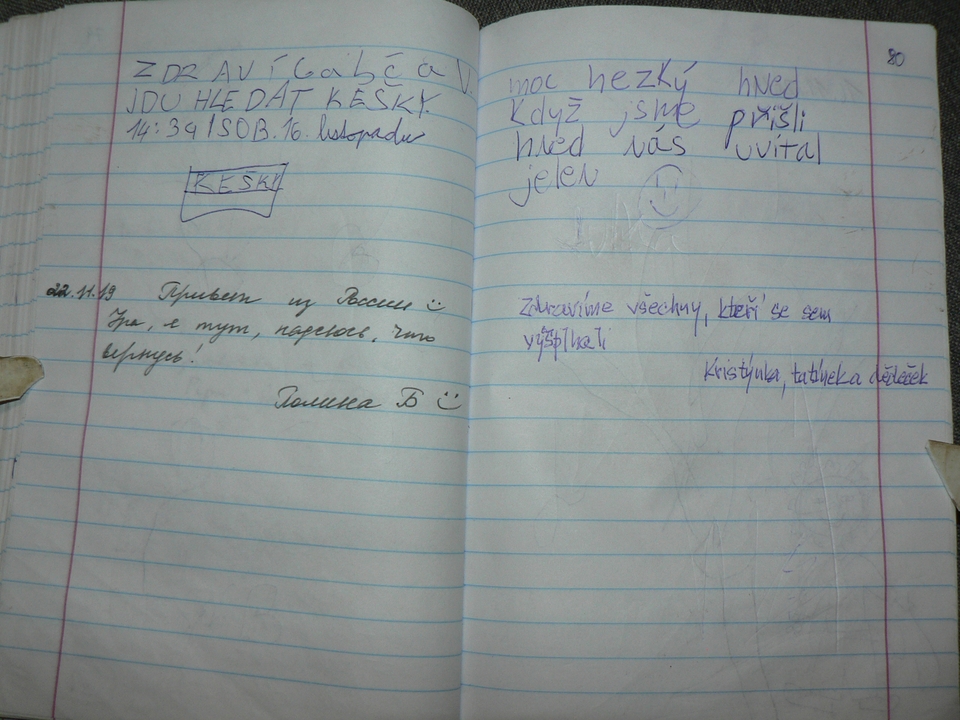 ZDRAVÍ Gabča V.
JDU HLEDAT KEŠKY.
14:34 / SOB. 16. listopadu
KEŠKY
22.11.19 Привет из России
Ура, я тут, надеюсь, что
вернусь!
Полина Б
80
moc hezký hned
když jsme přišli
hned nás uvítal
jelen
Zdravíme všechny, kteří se sem
vyšplhali
Kristýnka, tatínek a dědeček